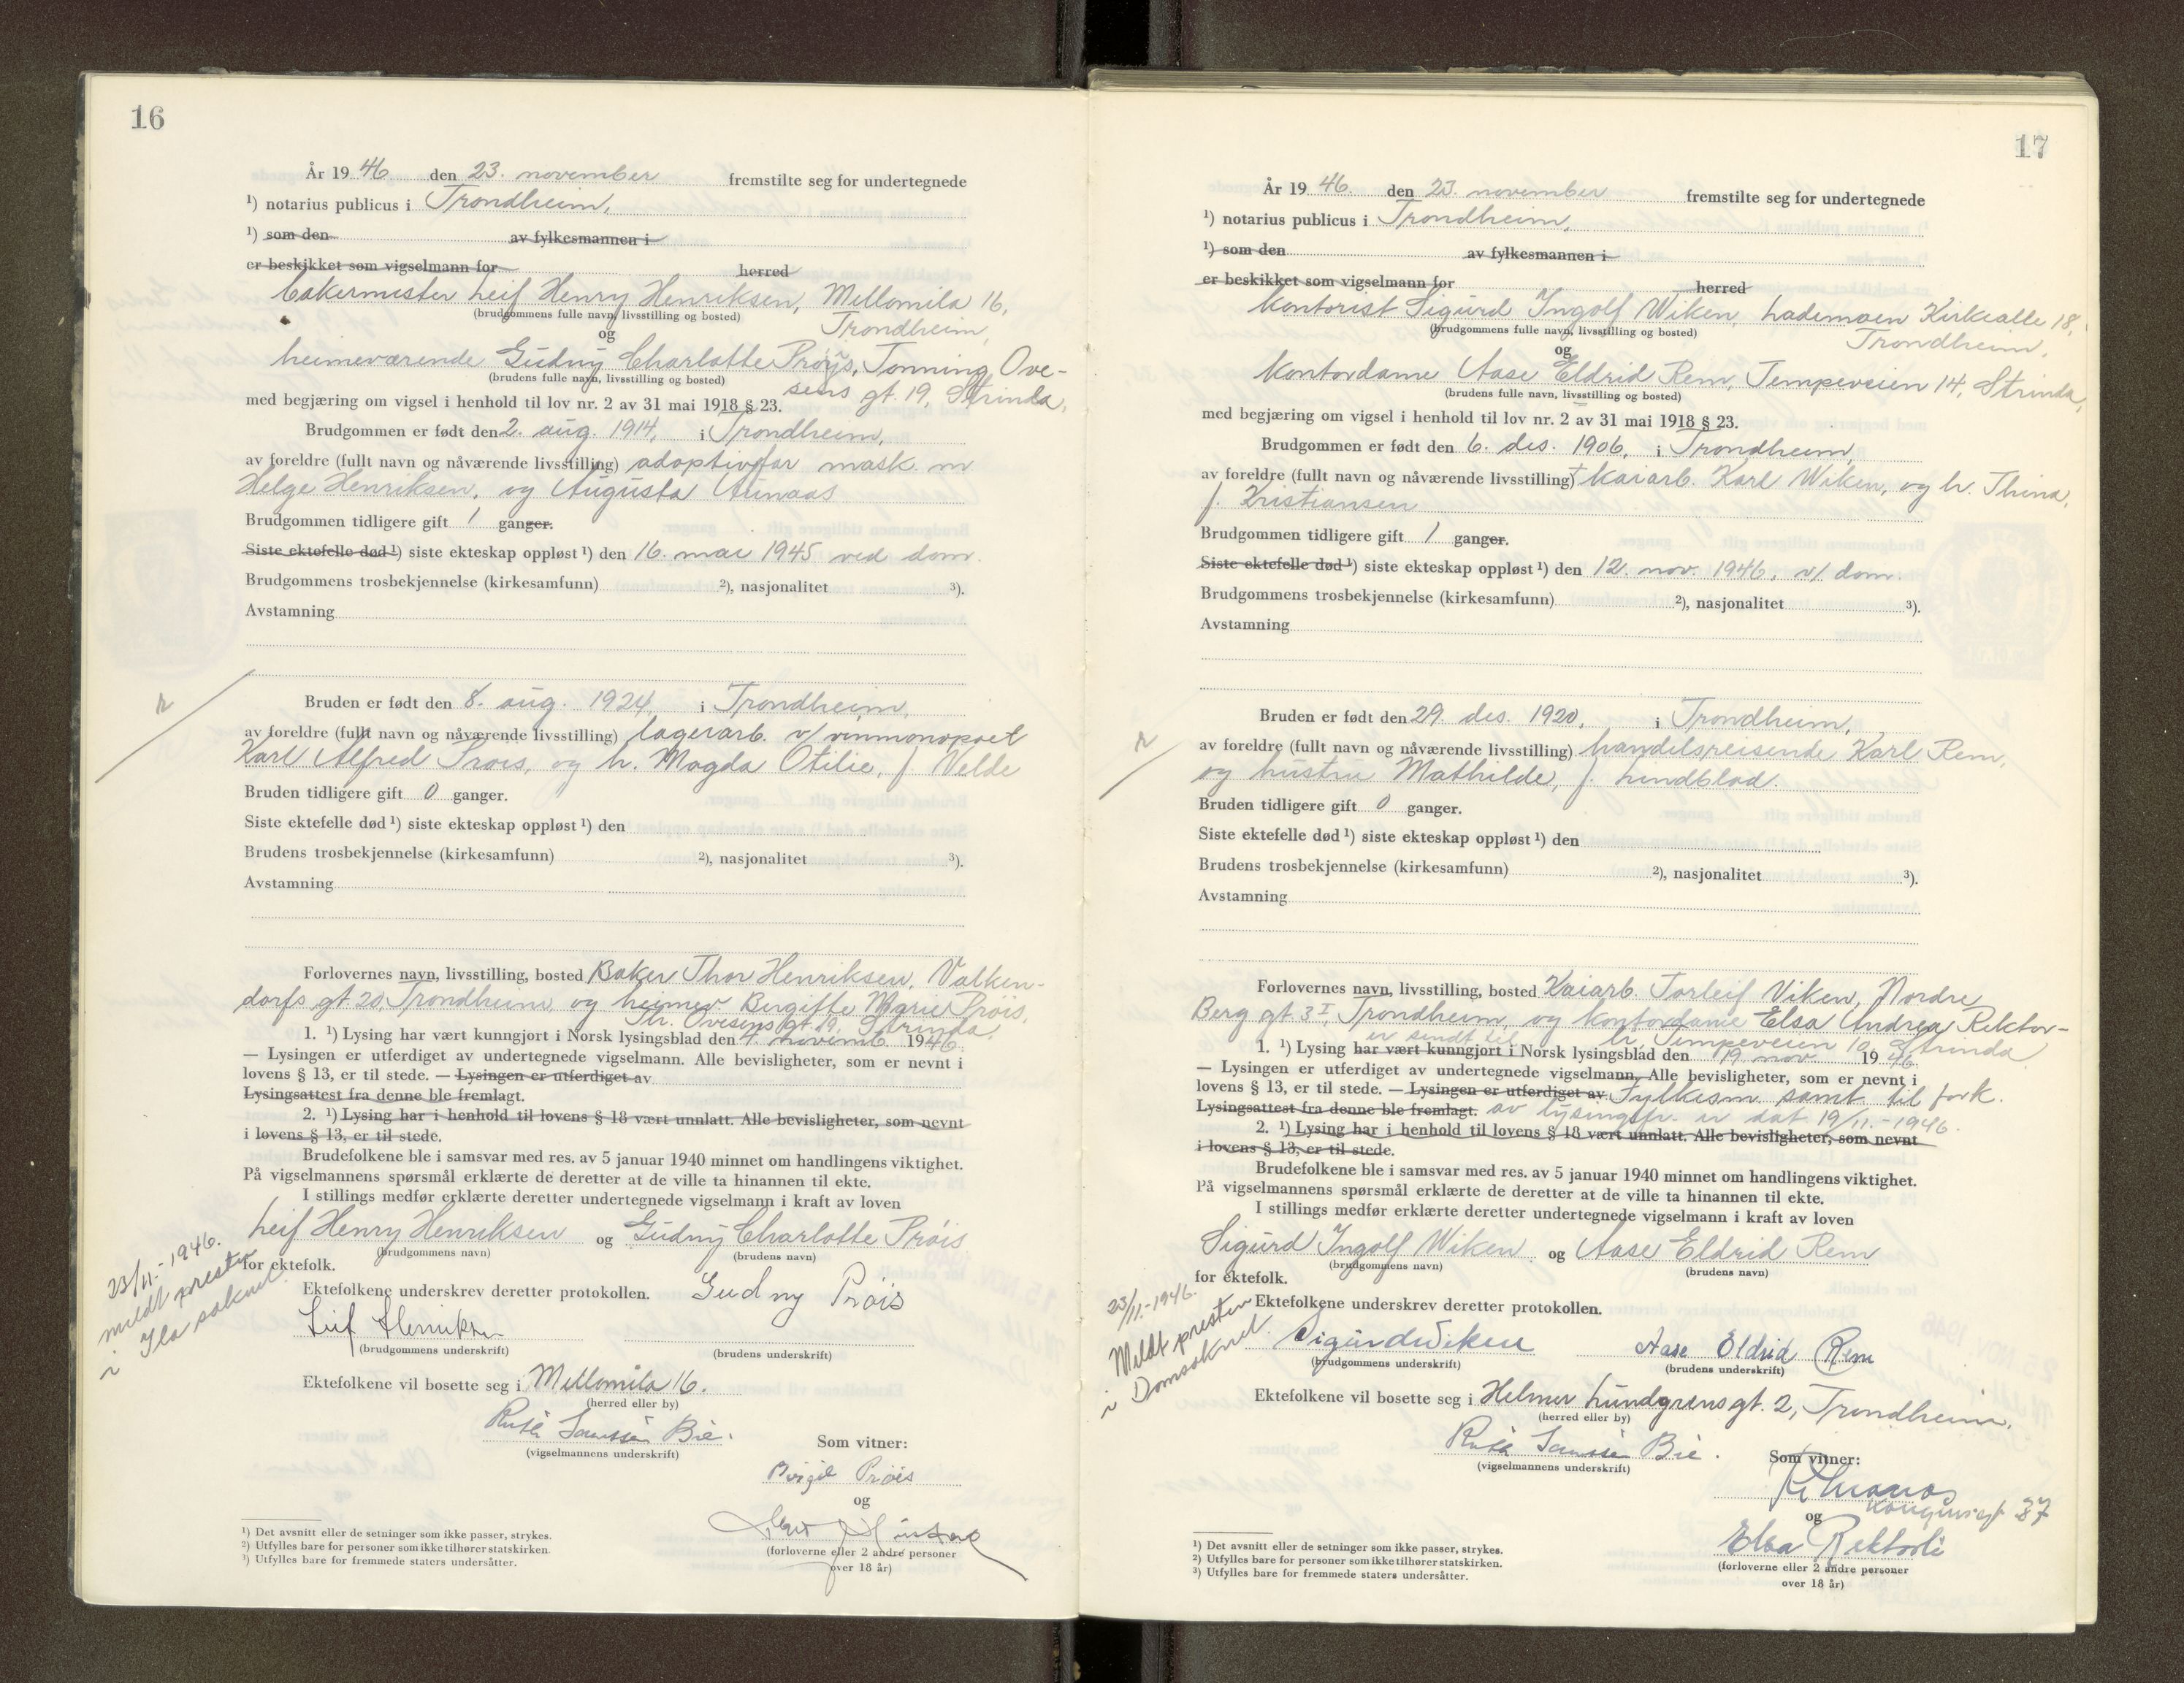 16
År 19 46 den 23. november fremstilte seg for undertegnede
¹) notarius publicus i Trondheim,
¹) som den av fylkesmannen i
er beskikket som vigselmann for herred
bakermester Leif Henry Henriksen, Mellomila 16,
(brudgommens fulle navn, livsstilling og bosted) Trondheim,
og
heimeværende Gudny Charlotte Prøys, Tonning Ove-
(brudens fulle navn, livsstilling og bosted) sens gt. 19, Strinda,
med begjæring om vigsel i henhold til lov nr. 2 av 31 mai 1918 § 23.
Brudgommen er født den 2. aug. 1914, i Trondheim,
av foreldre (fullt navn og nåværende livsstilling) adoptivfar mask. m
Helge Henriksen, og Augusta Aunaas
Brudgommen tidligere gift 1 ganger.
Siste ektefelle død ¹) siste ekteskap oppløst ¹) den 16. mai 1945 ved dom.
Brudgommens trosbekjennelse (kirkesamfunn) ²), nasjonalitet ³).
Avstamning
Bruden er født den 8. aug. 1924, i Trondheim,
av foreldre (fullt navn og nåværende livsstilling) lagerarb. v/ vinmonopolet
Karl Alfred Prøis, og h. Magda Otilie, f. Velde
Bruden tidligere gift 0 ganger.
Siste ektefelle død ¹) siste ekteskap oppløst ¹) den
Brudens trosbekjennelse (kirkesamfunn) ²), nasjonalitet ³).
Avstamning
Forlovernes navn, livsstilling, bosted Baker Thor Henriksen, Valken-
dorfs gt. 20, Trondheim, og heimev. Birgitte Marie Prøis,
Th. Ovesens gt. 19, Strinda,
1. ¹) Lysing har vært kunngjort i Norsk lysingsblad den 4. novemb. 1946.
— Lysingen er utferdiget av undertegnede vigselmann. Alle bevisligheter, som er nevnt i
lovens § 13, er til stede. — Lysingen er utferdiget av
Lysingsattest fra denne ble fremlagt.
2. ¹) Lysing har i henhold til lovens § 18 vært unnlatt. Alle bevisligheter, som nevnt
i lovens § 13, er til stede.
Brudefolkene ble i samsvar med res. av 5 januar 1940 minnet om handlingens viktighet.
På vigselmannens spørsmål erklærte de deretter at de ville ta hinannen til ekte.
I stillings medfør erklærte deretter undertegnede vigselmann i kraft av loven
Leif Henry Henriksen og Gudny Charlotte Prøis
(brudgommens navn) (brudens navn)
for ektefolk.
23/11.-1946.
meldt presten
i Ila sokn
Ektefolkene underskrev deretter protokollen. Gudny Prøis
Leif Henriksen
(brudgommens underskrift) (brudens underskrift)
Ektefolkene vil bosette seg i Mellomila 16.
(herred eller by)
Bie.
(vigselmannens underskrift)
Som vitner:
Prøis
og
(forloverne eller 2 andre personer
over 18 år)
¹) Det avsnitt eller de setninger som ikke passer, strykes.
²) Utfylles bare for personer som ikke tilhører statskirken.
³) Utfylles bare for fremmede staters undersåtter.
17
År 19 46. den 23. november fremstilte seg for undertegnede
¹) notarius publicus i Trondheim,
¹) som den av fylkesmannen i
er beskikket som vigselmann for herred
kontorist Sigurd Ingolf Wiken, Lademoen Kirkealle 18,
(brudgommens fulle navn, livsstilling og bosted) Trondheim,
og
kontordame Aase Eldrid Rem, Tempeveien 14, Strinda,
(brudens fulle navn, livsstilling og bosted)
med begjæring om vigsel i henhold til lov nr. 2 av 31 mai 1918 § 23.
Brudgommen er født den 6. des. 1906, i Trondheim,
av foreldre (fullt navn og nåværende livsstilling) † kaiarb. Karl Wiken, og h. Thina,
f. Kristiansen
Brudgommen tidligere gift 1 ganger.
Siste ektefelle død ¹) siste ekteskap oppløst ¹) den 12. nov. 1946, v/ dom.
Brudgommens trosbekjennelse (kirkesamfunn) ²), nasjonalitet ³).
Avstamning
Bruden er født den 29. des. 1920, i Trondheim,
av foreldre (fullt navn og nåværende livsstilling) handelsreisende Karl Rem,
og hustru Mathilde, f. Lindblad.
Bruden tidligere gift 0 ganger.
Siste ektefelle død ¹) siste ekteskap oppløst ¹) den
Brudens trosbekjennelse (kirkesamfunn) ²), nasjonalitet ³).
Avstamning
Forlovernes navn, livsstilling, bosted Kaiarb. Torleif Viken, Nordre
Berg gt 3 I, Trondheim, og kontordame Elsa Andrea Rektor-
li, Tempeveien 10, Strinda
er sendt til
1. ¹) Lysing har vært kunngjort i Norsk lysingsblad den 19 nov 19 46
— Lysingen er utferdiget av undertegnede vigselmann, Alle bevisligheter, som er nevnt i
lovens § 13, er til stede. — Lysingen er utferdiget av Fylkesm samt. til fork.
Lysingsattest fra denne ble fremlagt. av lysingsfr. er dat 19/11.-1946.
2. ¹) Lysing har i henhold til lovens § 18 vært unnlatt. Alle bevisligheter, som nevnt
i lovens § 13, er til stede.
Brudefolkene ble i samsvar med res. av 5 januar 1940 minnet om handlingens viktighet.
På vigselmannens spørsmål erklærte de deretter at de ville ta hinannen til ekte.
I stillings medfør erklærte deretter undertegnede vigselmann i kraft av loven
Sigurd Ingolf Wiken og Aase Eldrid Rem
(brudgommens navn) (brudens navn)
for ektefolk.
23/11.-1946.
Meldt presten
i Domsoknet.
Ektefolkene underskrev deretter protokollen.
Sigurd Wiken Aase Eldrid Rem
(brudgommens underskrift) (brudens underskrift)
Ektefolkene vil bosette seg i Helmer Lundgrens gt. 2, Trondheim.
(herred eller by)
Bie.
(vigselmannens underskrift)
Som vitner:
37
og
Elsa Rektorli
(forloverne eller 2 andre personer
over 18 år)
¹) Det avsnitt eller de setninger som ikke passer, strykes.
²) Utfylles bare for personer som ikke tilhører statskirken.
³) Utfylles bare for fremmede staters undersåtter.